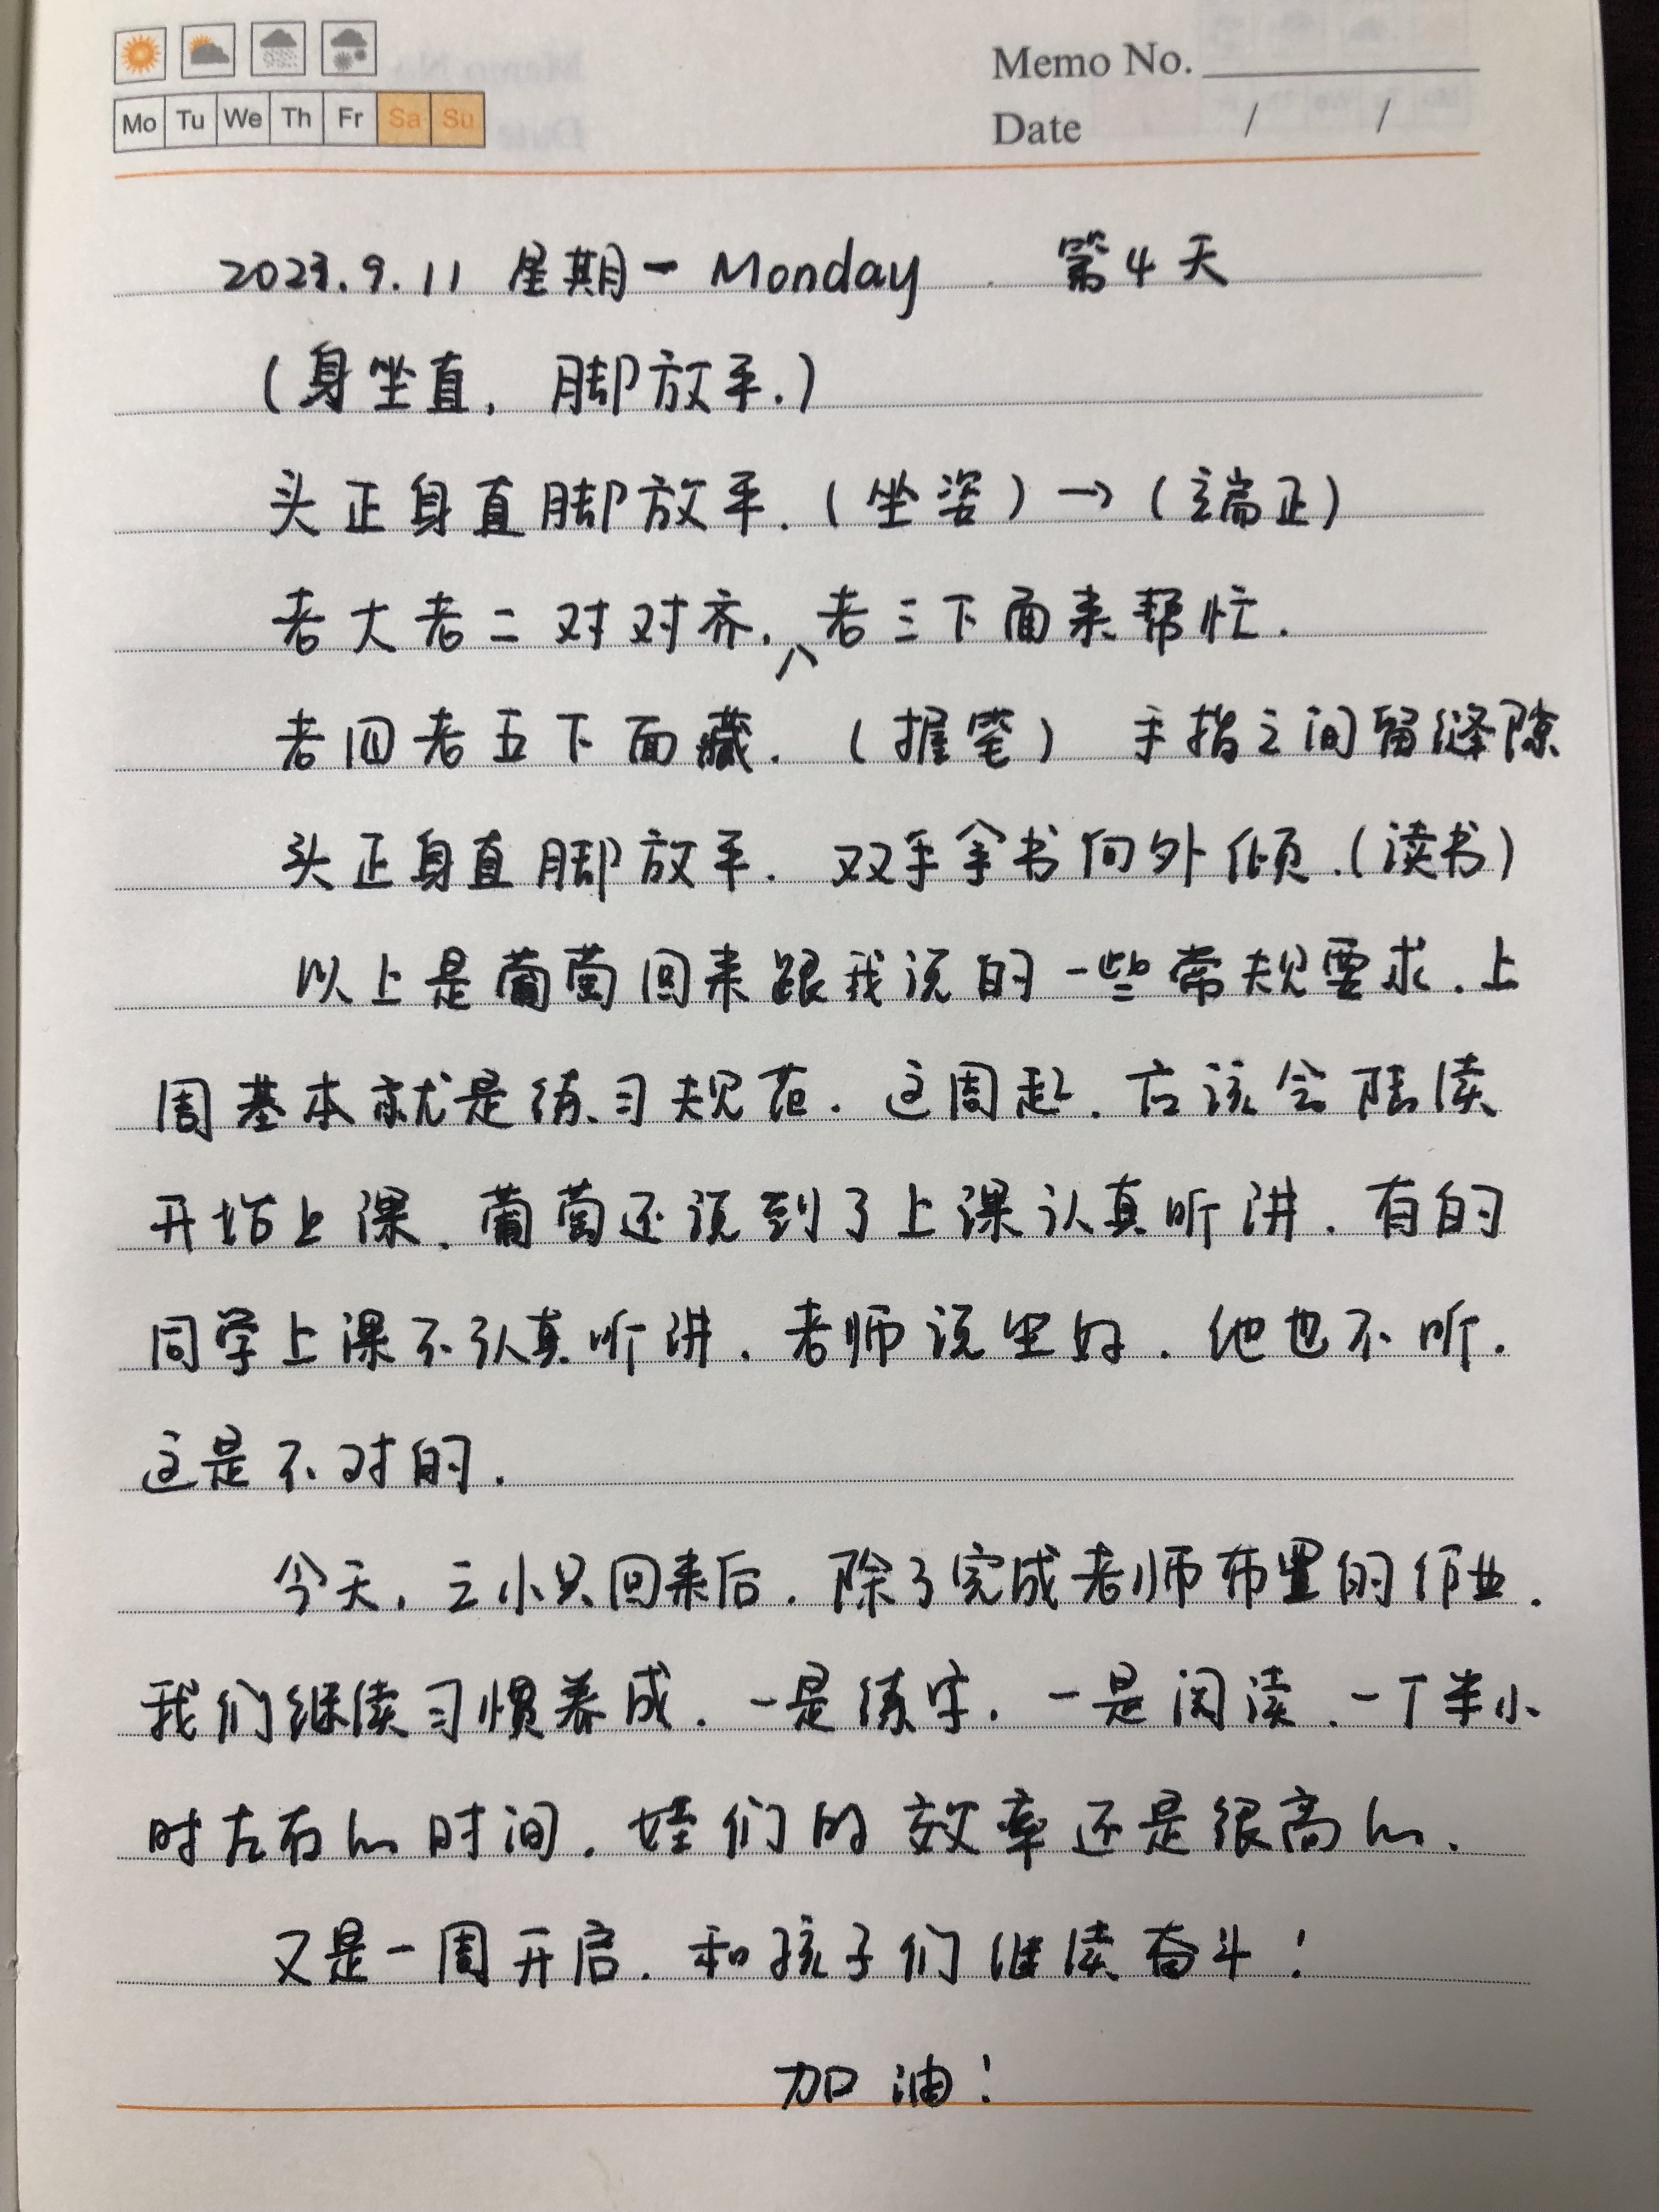 Memo No.
Mo Tu We Th Fr Sa Su
Date / /
2023.9.11 星期一 Monday 第4天
(身坐直,脚放平.)
头正身直脚放平.(坐姿)→(端正)
老大老二对对齐.老三下面来帮忙.
老四老五下面藏.(握笔) 手指之间留缝隙
头正身直脚放平.双手拿书向外倾.(读书)
以上是葡萄回来跟我说的一些常规要求.上
周基本就是练习规范.这周起.应该会陆续
开始上课.葡萄还说到了上课认真听讲.有的
同学上课不认真听讲.老师说坐好.他也不听.
这是不对的.
今天,三小只回来后.除了完成老师布置的作业.
我们继续习惯养成.一是练字.一是阅读.一个半小
时左右的时间.娃们的效率还是很高的.
又是一周开启.和孩子们继续奋斗!
加油!